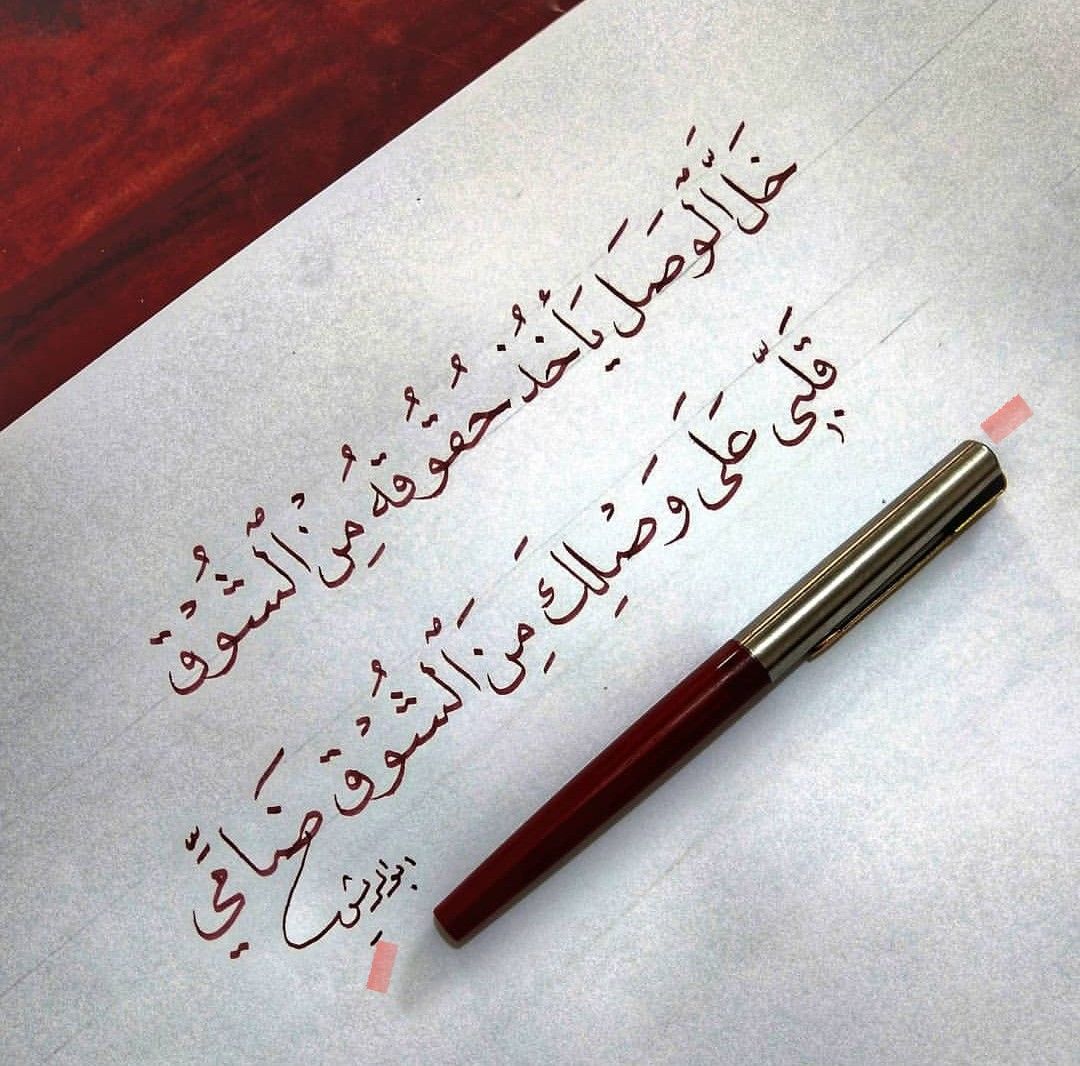 خَلَ ٱلَّوَصَل يَأْخُذ حُقُوقهُ مِنْ ٱلّشُوْق
قَلبّي عَلَى وَصْلِكَ مِنَ ٱلّشُوْق ضَامِّي
ابوالريش